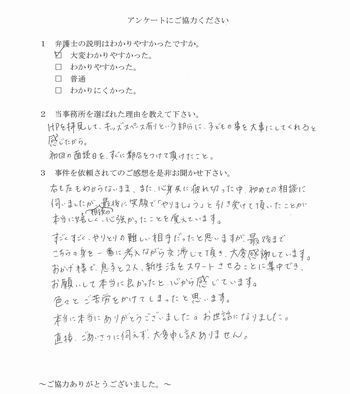 アンケートにご協力ください
1 弁護士の説明はわかりやすかったですか。
☑ 大変わかりやすかった。
☐ わかりやすかった。
☐ 普通
☐ わかりにくかった。
2 当事務所を選ばれた理由を教えて下さい。
HPを拝見して、キッズスペース有りという部分に、子どもの事を大事にしてくれると
感じたから。
初回の面談日を、すぐに都合をつけて頂けたこと。
3 事件を依頼されてのご感想を是非お聞かせ下さい。
右も左もわからないまま、また、心身共に疲れ切った中、初めての相談に
伺いましたが、最後に笑顔で「やりましょう」と引き受けて頂いたことが
相談の
本当に嬉しく、心強かったことを覚えています。
すごくすごく、やりとりの難しい相手だったと思いますが、最後まで
こちらの身を一番に考えながら交渉して頂き、大変感謝しています。
おかげ様で、息子と2人、新生活をスタートさせることに集中でき、
お願いして本当に良かったと、心から感じています。
色々とご苦労をかけてしまったと思います。
本当に本当にありがとうございました。お世話になりました。
直接、ごあいさつに伺えず、大変申し訳ありません。
～ご協力ありがとうございました。～